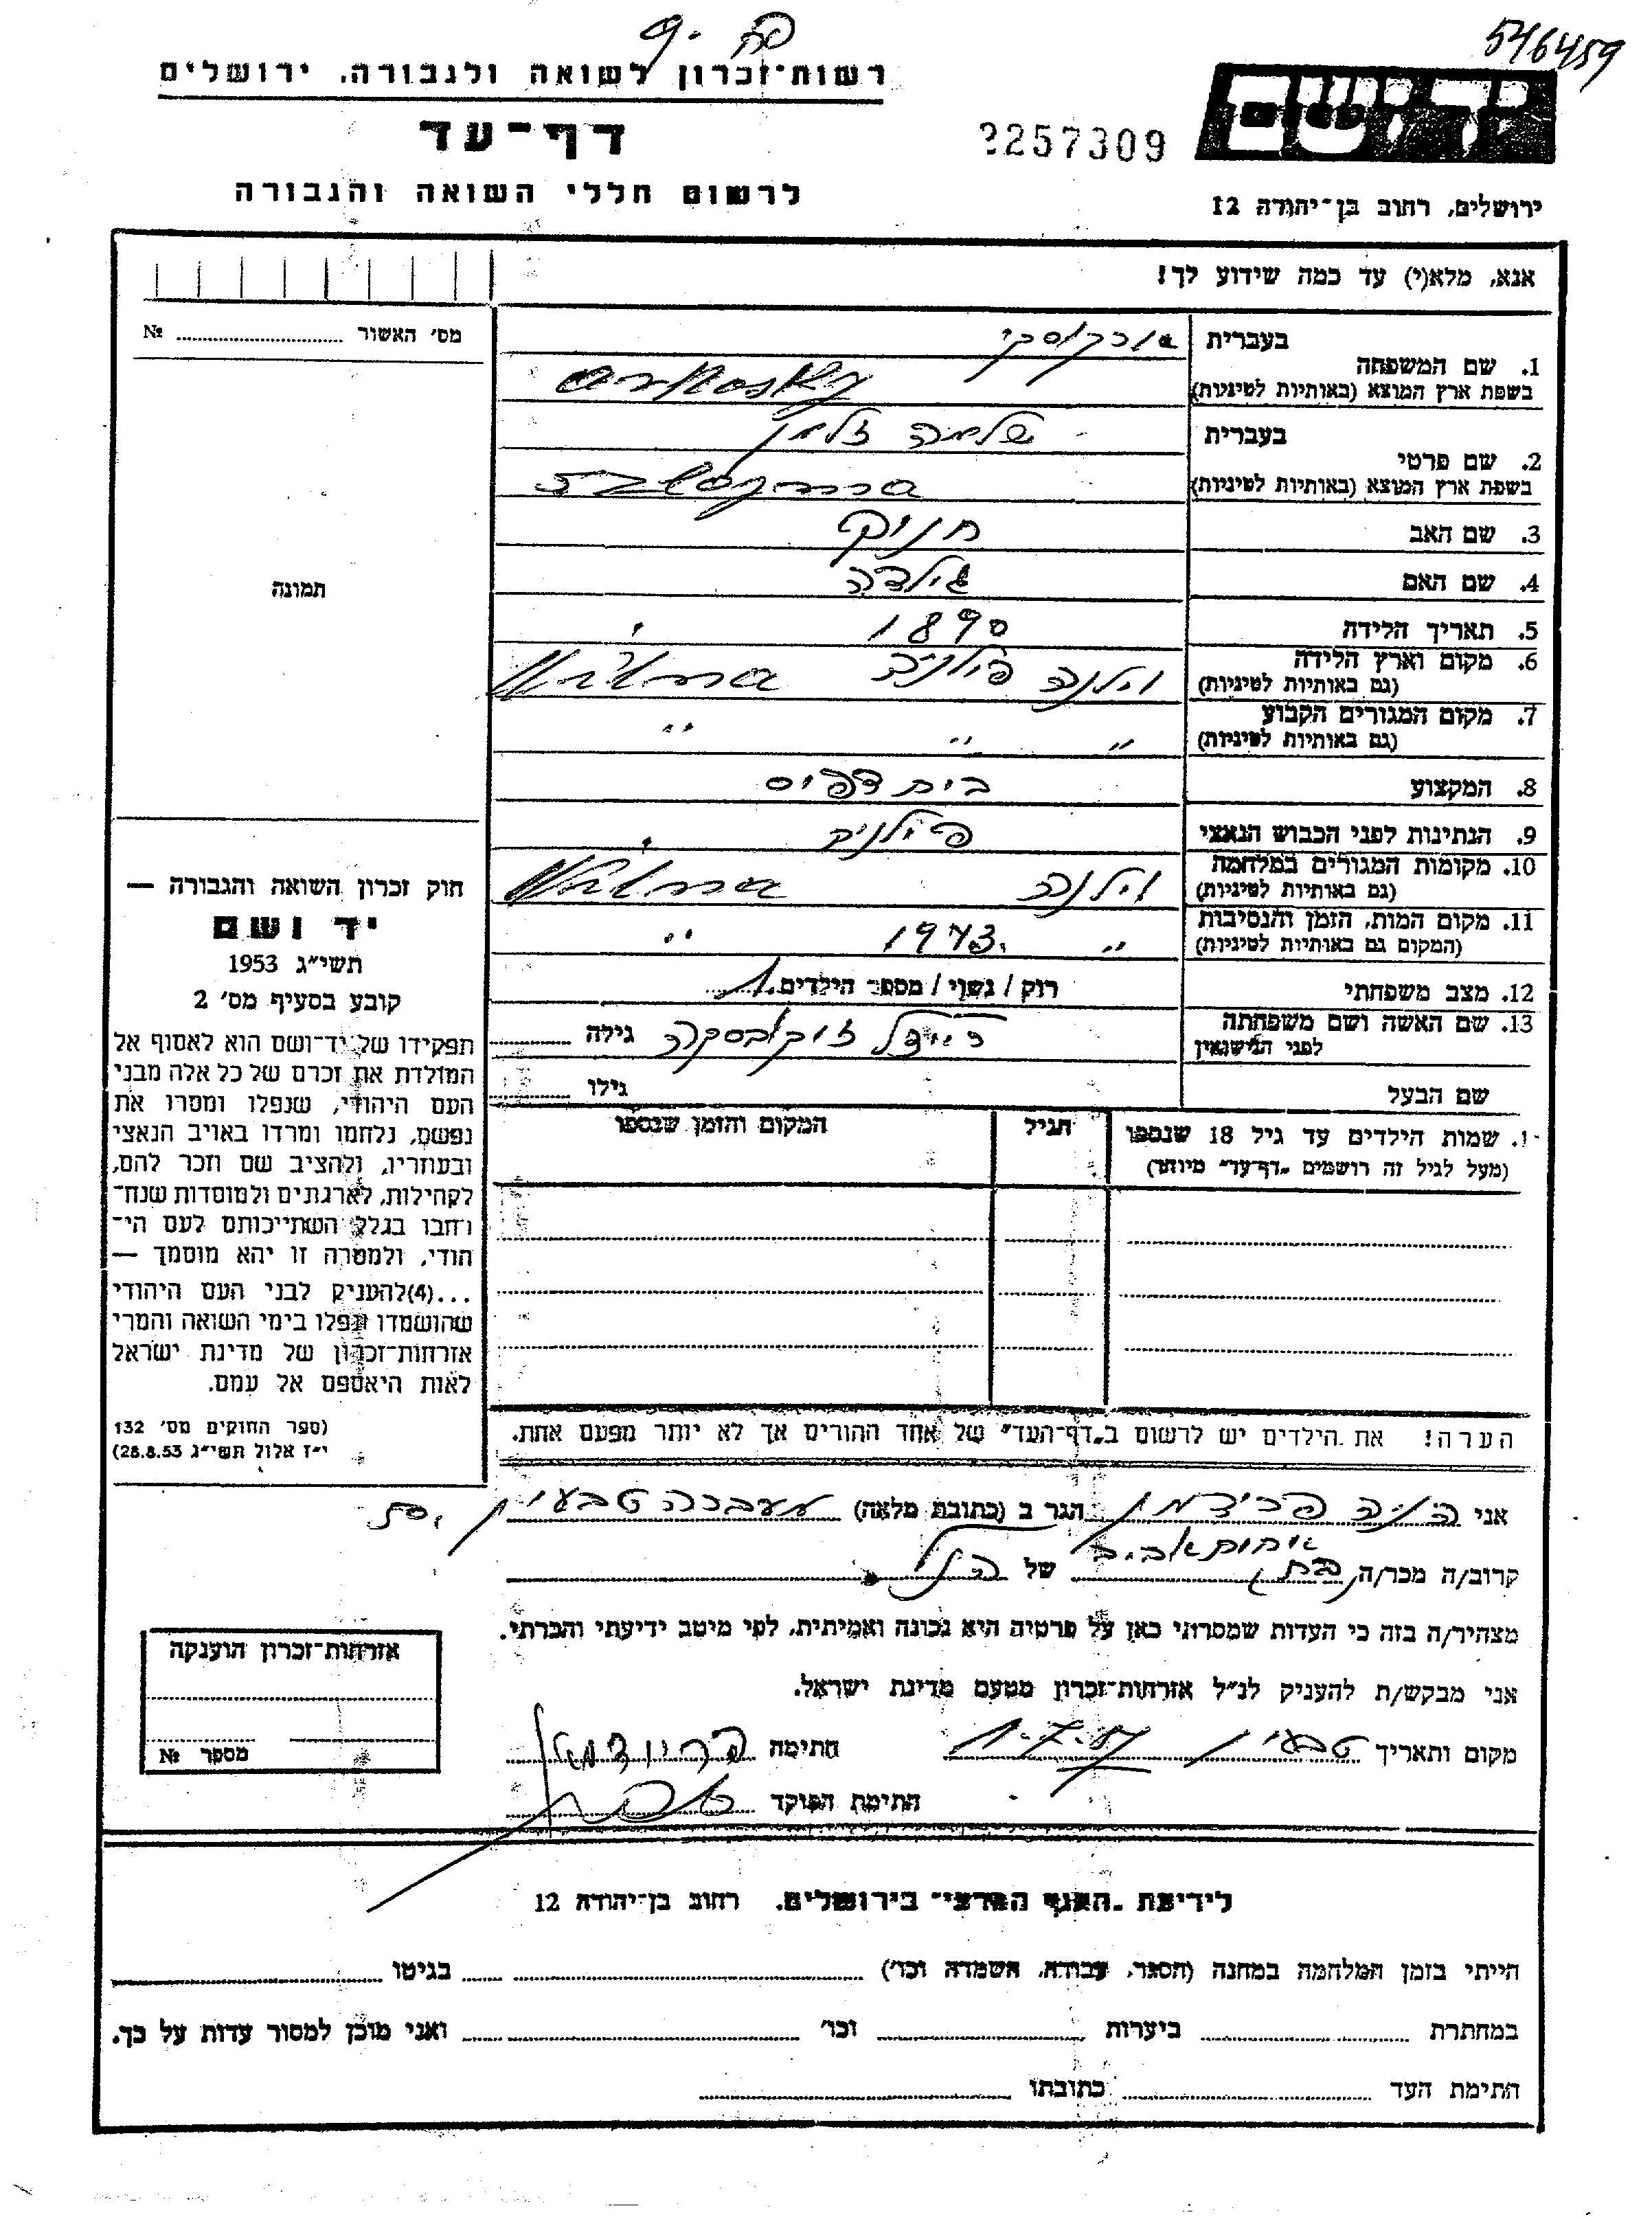 פה .9
546459
רשות־זכרון לשואה ולגבורה, ירושלים
יד ושם
דף־עד
2257309
לרשום חללי השואה והגבורה
ירושלים, רחוב בן־יהודה 12
אנא, מלא(י) עד כמה שידוע לך!
מס' האשור № 
1. שם המשפחה בעברית אורקוסקי
בשפת ארץ המוצא (באותיות לטיניות) Orkosky
2. שם פרטי בעברית שלמה זלמן
בשפת ארץ המוצא (באותיות לטיניות)
3. שם האב חנוך
4. שם האם גולדה
תמונה
5. תאריך הלידה 1890
6. מקום וארץ הלידה וילנה פולניה Wilna
(גם באותיות לטיניות)
7. מקום המגורים הקבוע " " "
(גם באותיות לטיניות)
8. המקצוע בית דפוס
9. הנתינות לפני הכבוש הנאצי פולנית
10. מקומות המגורים במלחמה וילנה Wilna
(גם באותיות לטיניות)
11. מקום המות, הזמן והנסיבות " 1943. "
(המקום גם באותיות לטיניות)
12. מצב משפחתי רוק / נשוי / מספר הילדים 1
13. שם האשה ושם משפחתה
לפני הנישואין
גילה
שם הבעל גילו
שמות הילדים עד גיל 18 שנספו הגיל המקום והזמן שנספו
(מעל לגיל זה רושמים "דף־עד" מיוחד)
חוק זכרון השואה והגבורה —
יד ושם
תשי"ג 1953
קובע בסעיף מס' 2
תפקידו של יד־ושם הוא לאסוף אל
המולדת את זכרם של כל אלה מבני
העם היהודי, שנפלו ומסרו את
נפשם, נלחמו ומרדו באויב הנאצי
ובעוזריו, ולהציב שם וזכר להם,
לקהילות, לארגונים ולמוסדות שנח־
רבו בגלל השתייכותם לעם הי־
הודי, ולמטרה זו יהא מוסמך —
...(4)להעניק לבני העם היהודי
שהושמדו ונפלו בימי השואה והמרי
אזרחות־זכרון של מדינת ישראל
לאות היאספם אל עמם.
(ספר החוקים מס' 132
י"ז אלול תשי"ג 28.8.53)
הערה! את הילדים יש לרשום ב"דף־העד" של אחד ההורים אך לא יותר מפעם אחת.
אני פרידמן הגר ב (כתובת מלאה) מעברה טבעון
קרוב/ה מכר/ה בת של הנ"ל
מצהיר/ה בזה כי העדות שמסרתי כאן על פרטיה היא נכונה ואמיתית, לפי מיטב ידיעתי והכרתי.
אני מבקש/ת להעניק לנ"ל אזרחות־זכרון מטעם מדינת ישראל.
מקום ותאריך טבעון 1.7.57 חתימה פרידמן
חתימת הפוקד
אזרחות־זכרון הוענקה
מספר №
לידיעת "האגף המדעי" בירושלים, רחוב בן־יהודה 12
הייתי בזמן המלחמה במחנה (הסגר, עבודה, השמדה וכו') בגיטו
במחתרת ביערות וכו' ואני מוכן למסור עדות על כך.
חתימת העד כתובתו